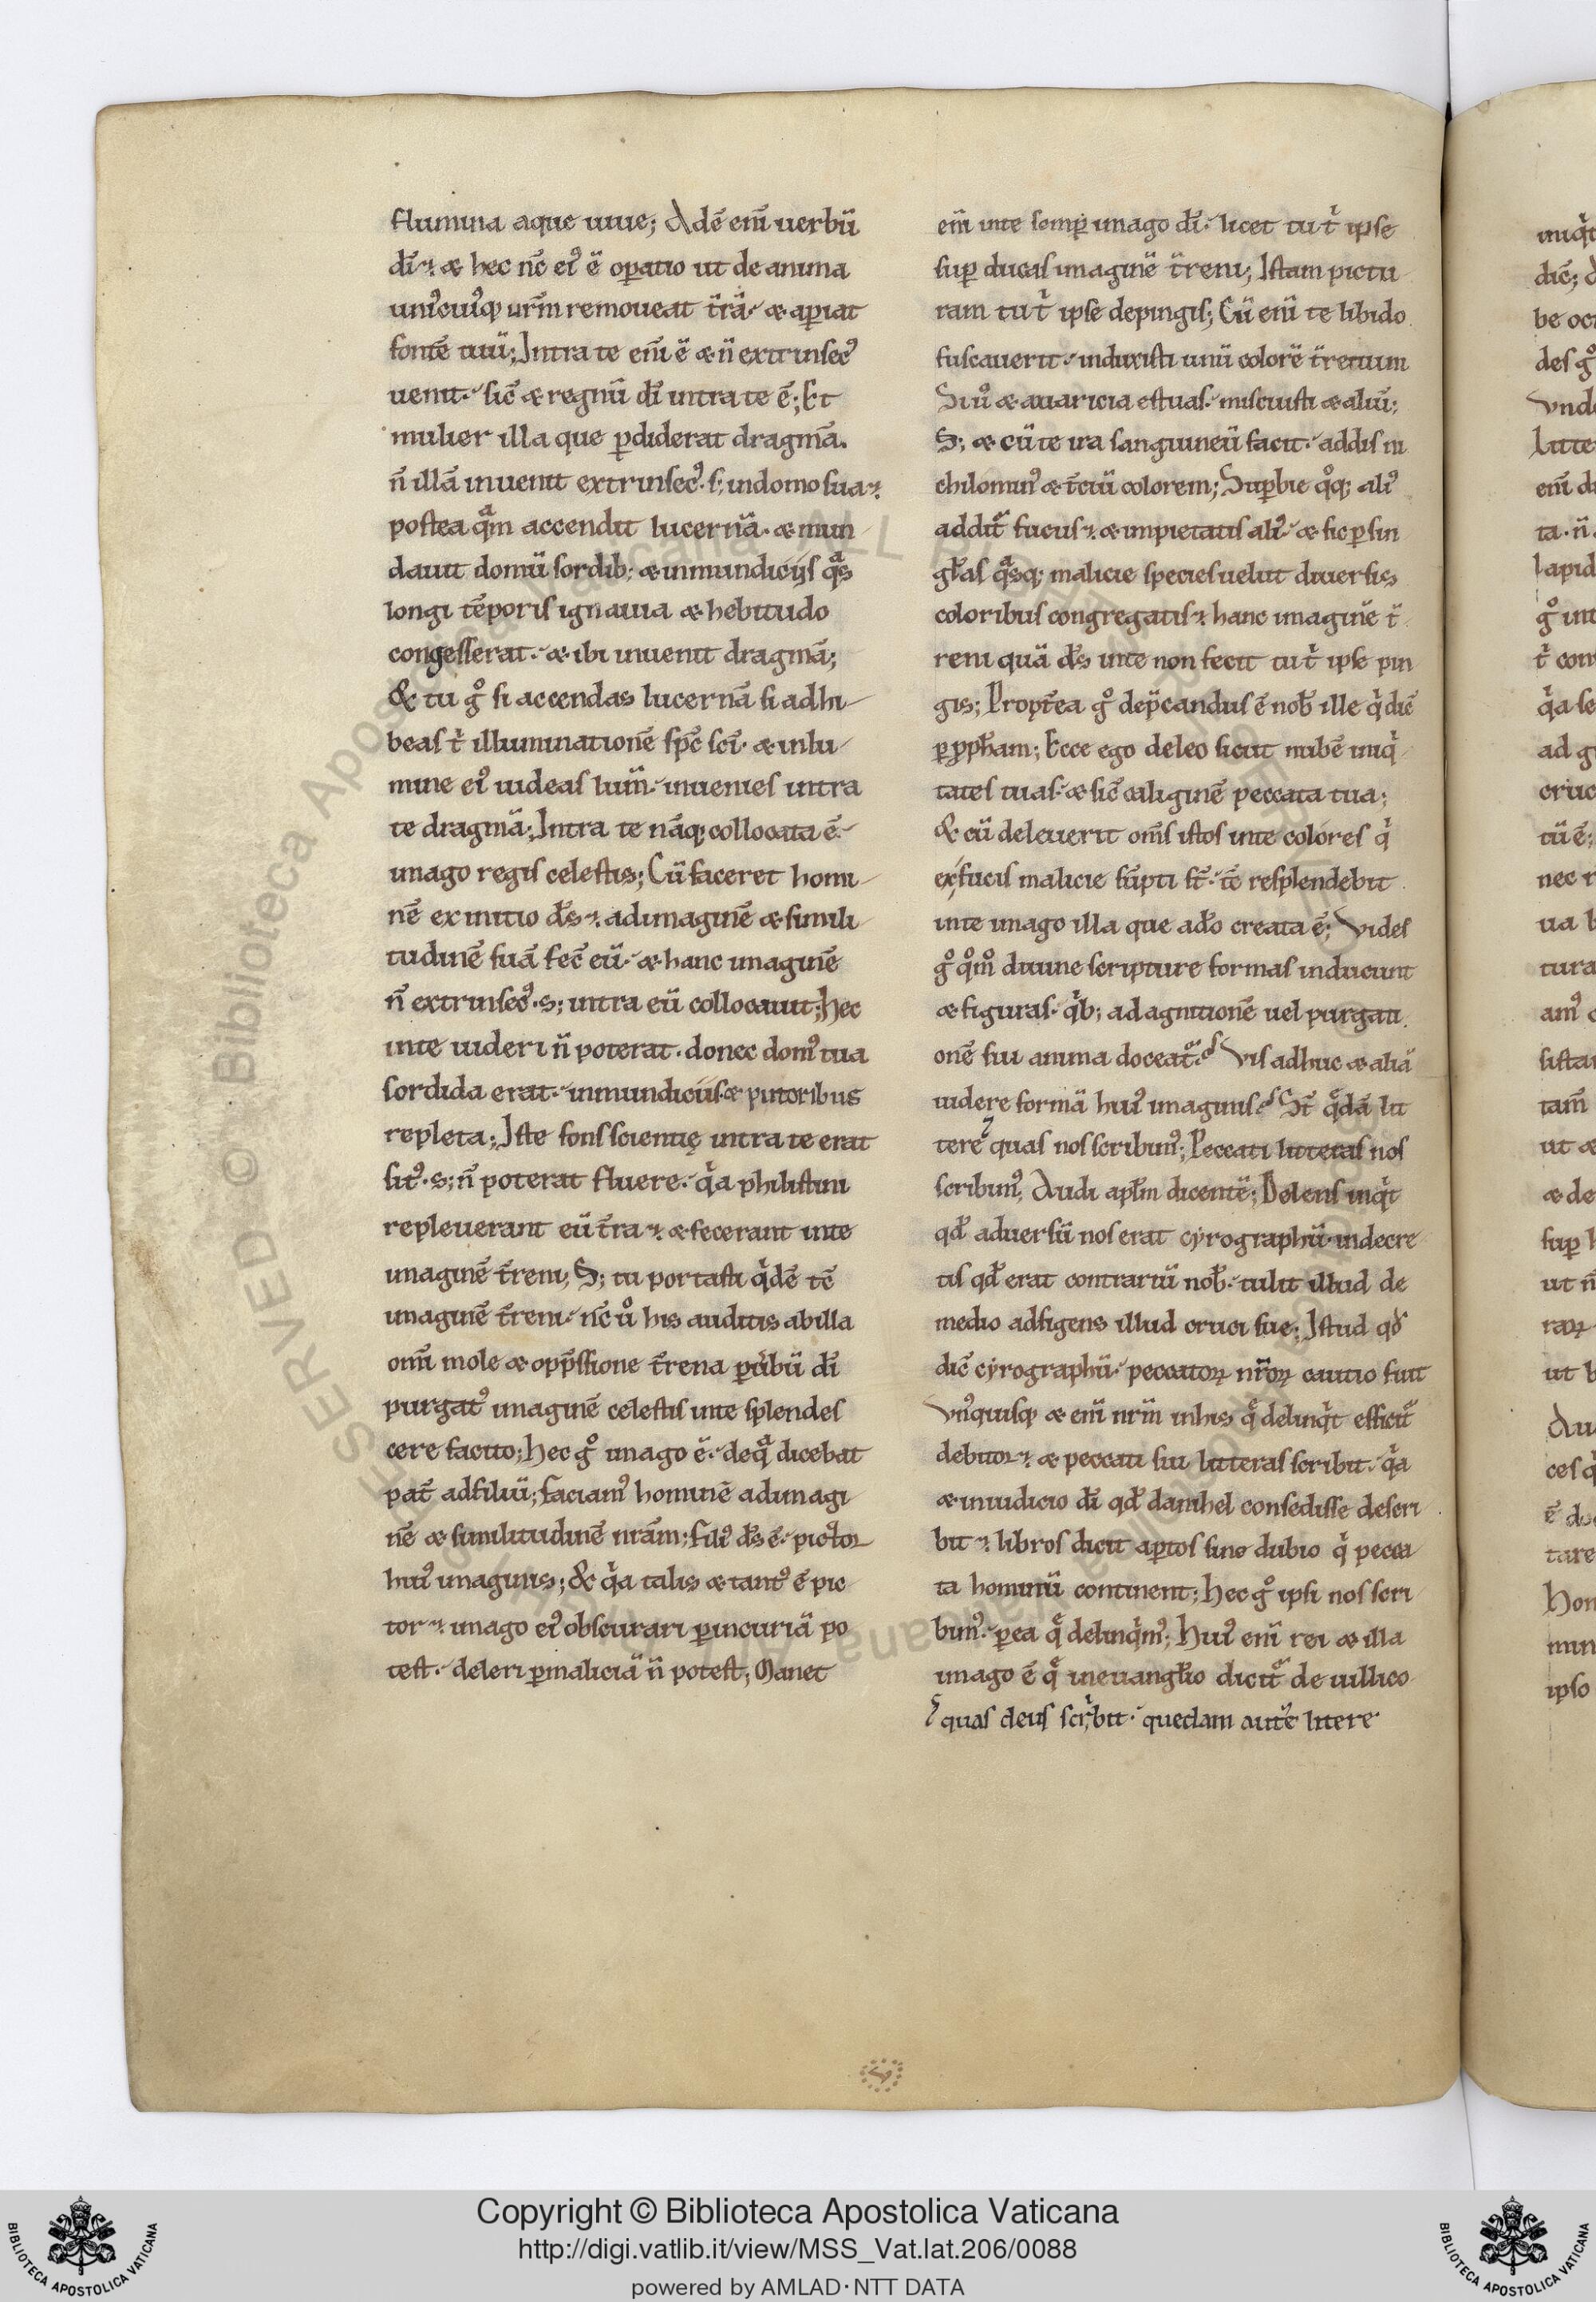 flumina aque uiue; Adē eni̅ uerbū
dī. & hec nc̄ ei᾽ ē oꝑatio ut de anima
uni᾽cui᾽q; ur̄m remoueat t̄rā. & aꝑiat
fontē tuū; Intra te eni̅ ē & n̄ extrinsec᾽
uenit. sic̄ & regnū dī intra te ē; Et
mulier illa que ꝑdiderat dragmā.
n̄ illā inuenit extrinsec᾽. s; in domo sua.
postea qᵃm accendit lucernā. & mun
dauit domū sordib; & inmundicijs qᵃs
longi tēporis ignauia & hebitudo
congesserat. & ibi inuenit dragmā;
& tu gº si accendas lucernā si adhi
beas tⁱ illuminationē sp̄c sc̄i. & in lu
mine ei᾽ uideas lum̄. inuenies intra
te dragmā; Intra te nāq; collocata ē.
imago regis celestis; Cū faceret homi
nē ex initio d̄s. ad imaginē & simili
tudinē suā fec̄ eū. & hanc imaginē
n̄ extrinsec᾽. s; intra eū collocauit; hec
in te uideri n̄ poterat. donec dom᾽ tua
sordida erat. inmundiciis & putoribus
repleta; Iste fons scientię intra te erat
sit᾽. s; n̄ poterat fluere. qⁱa philistini
repleuerant eū t̄ra. & fecerant in te
imaginē t̄reni; S; tu portasti qⁱdē tc̄
imaginē t̄reni. nc̄ uº his auditis ab illa
omī mole & opp̄ssione t̄rena ꝑ uͥbū dī
purgat᾽ imaginē celestis in te splendes
cere facito; hec gº imago ē. de qᵃ dicebat
pat̄ ad filiū; faciam᾽ hominē ad imagi
nē & similitudinē nrām; fili᾽ d̄s ē. pictor
hui᾽ imaginis; & qⁱa talis & tant᾽ ē pic
tor. imago ei᾽ obscurari ꝑ incuriā po
test. deleri ꝑ maliciā n̄ potest; Manet
eni̅ in te semꝑ imago dī. licet tu tⁱ ipse
suꝑ ducas imaginē t̄reni; Istam pictu
ram tu tⁱ ipse depingis; Cū eni̅ te libido
fuscauerit. induxisti unū colorē t̄renum
Si uº & auaricia estuas. miscuisti & aliū;
S; & cū te ira sanguineū facit. addis ni
chilomin᾽ & t̄ciū colorem; Suꝑbie qºq; ali᾽
addit᷑ fucus. & impietatis ali᾽. & sic ꝑ sin
gl̄as qᵃsq; malicie species uelut diuersis
coloribus congregatis. hanc imaginē t̄
reni quā d̄s in te non fecit tu tⁱ ipse pin
gis; Propt̄ea gº dep̄candus ē nob̄ ille qⁱ dic̄
ꝑ p̱pham; Ecce ego deleo sicut nubē iniqⁱ
tates tuas. & sic̄ caliginē peccata tua;
& cū deleuerit om̄s istos in te colores qⁱ
ex fucis malicie sūpti st̄. tc̄ resplendebit
in te imago illa que a dō creata ē; Vides
gº qºmº diuine scripture formas inducunt
& figuras. qⁱb; ad agnitionē uel purgati
onē sui anima doceat᷑? Vis adhuc & aliā
uidere formā hui᾽ imaginis? St̄ qᵉdā lit
tere quas nos scribim᾽; Peccati litteras nos
scribim᾽; Audi apl̄m dicentē; Delens inqⁱt
qd̄ aduersū nos erat cyrographū. in decre
tis qd̄ erat contrariū nob̄. tulit illud de
medio adfigens illud cruci sue; Istud qd̄
dic̄ cyrographū. peccatoꝝ nr̄oꝝ cautio fuit
Vn᾽quisq; & eni̅ nr̄m in his qᵉ delinqⁱt efficit᷑
debitor. & peccati sui litteras scribit. qⁱa
& in iudicio dī qd̄ danihel consedisse descri
bit. libros dicit aꝑtos sine dubio qⁱ pecca
ta hominū continent; hec gº ipsi nos scri
bim᾽. ꝑ ea qᵉ delinqⁱm᾽; hui᾽ eni̅ rei & illa
imago ē qᵉ in euangl̄io dicit᷑ de uillico
quas deus scribit. quedam autē litere
Copyright © Biblioteca Apostolica Vaticana
http://digi.vatlib.it/view/MSS_Vat.lat.206/0088
powered by AMLAD·NTT DATA
BIBLIOTECA APOSTOLICA VATICANA
BIBLIOTECA APOSTOLICA VATICANA